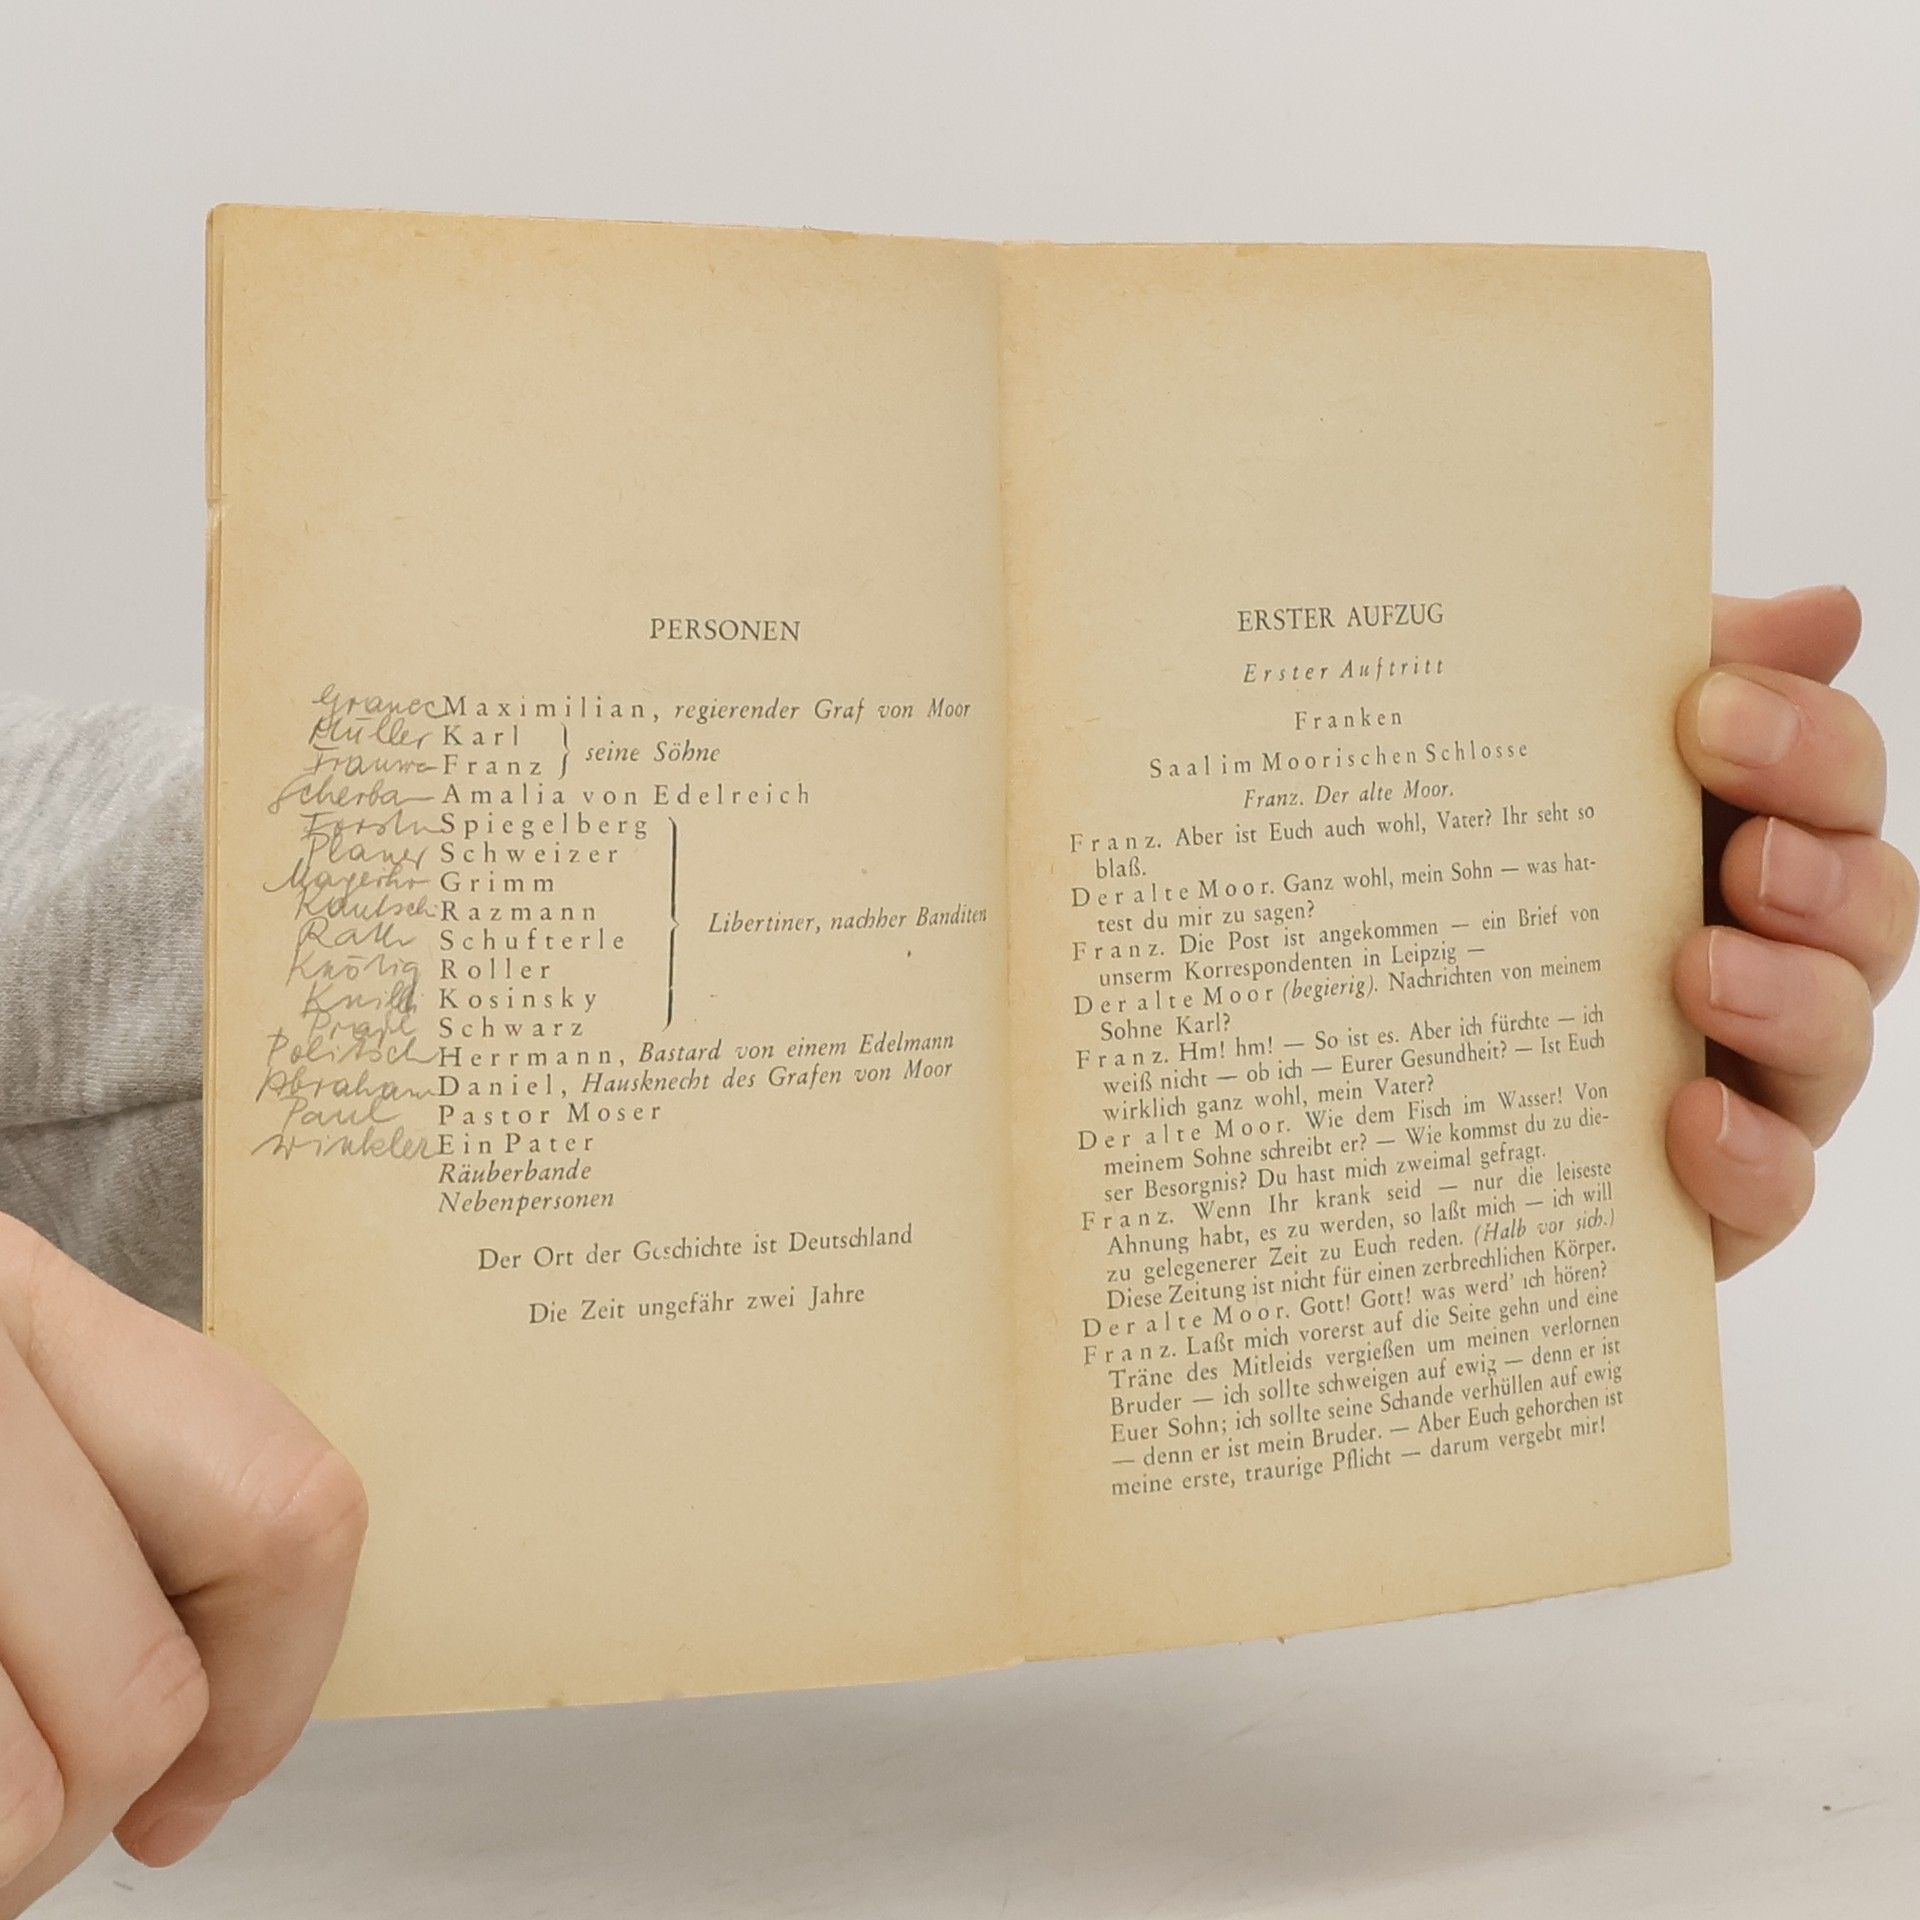 PERSONEN
Maximilian, regierender Graf von Moor
Müller Karl
Franz } seine Söhne
Scherba Amalia von Edelreich
Spiegelberg
Planer Schweizer
Grimm
Razmann
Libertiner, nachher Banditen
Schufterle
Roller
Kosinsky
Schwarz
Politsch Herrmann, Bastard von einem Edelmann
Abraham Daniel, Hausknecht des Grafen von Moor
Paul Pastor Moser
Winkler Ein Pater
Räuberbande
Nebenpersonen
Der Ort der Geschichte ist Deutschland
Die Zeit ungefähr zwei Jahre
ERSTER AUFZUG
Erster Auftritt
Franken
Saal im Moorischen Schlosse
Franz. Der alte Moor.
Franz. Aber ist Euch auch wohl, Vater? Ihr seht so
blaß.
Der alte Moor. Ganz wohl, mein Sohn — was hat-
test du mir zu sagen?
Franz. Die Post ist angekommen — ein Brief von
unserm Korrespondenten in Leipzig —
Der alte Moor (begierig). Nachrichten von meinem
Sohne Karl?
Franz. Hm! hm! — So ist es. Aber ich fürchte — ich
weiß nicht — ob ich — Eurer Gesundheit? — Ist Euch
wirklich ganz wohl, mein Vater?
Der alte Moor. Wie dem Fisch im Wasser! Von
meinem Sohne schreibt er? — Wie kommst du zu die-
ser Besorgnis? Du hast mich zweimal gefragt.
Franz. Wenn Ihr krank seid — nur die leiseste
Ahnung habt, es zu werden, so laßt mich — ich will
zu gelegenerer Zeit zu Euch reden. (Halb vor sich.)
Diese Zeitung ist nicht für einen zerbrechlichen Körper.
Der alte Moor. Gott! Gott! was werd' ich hören?
Franz. Laßt mich vorerst auf die Seite gehn und eine
Träne des Mitleids vergießen um meinen verlornen
Bruder — ich sollte schweigen auf ewig — denn er ist
Euer Sohn; ich sollte seine Schande verhüllen auf ewig
— denn er ist mein Bruder. — Aber Euch gehorchen ist
meine erste, traurige Pflicht — darum vergebt mir!